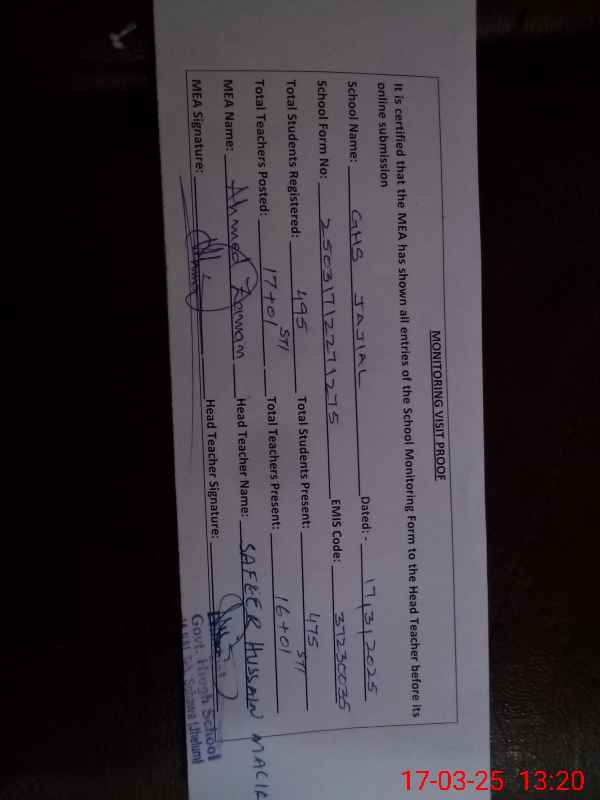 MONITORING VISIT PROOF
It is certified that the MEA has shown all entries of the School Monitoring Form to the Head Teacher before its
online submission
School Name: GHS JAJIAL Dated: - 17/3/2025
School Form No: 25031712271275 EMIS Code: 37230035
Total Students Registered: 495 Total Students Present: 475
Total Teachers Posted: 17+01 STI Total Teachers Present: 16+01 STI
MEA Name: Ahmed Zaman Head Teacher Name: SAFEER HUSSAIN
MEA Signature: Head Teacher Signature:
Govt. High School
Jhelum
17-03-25 13:20